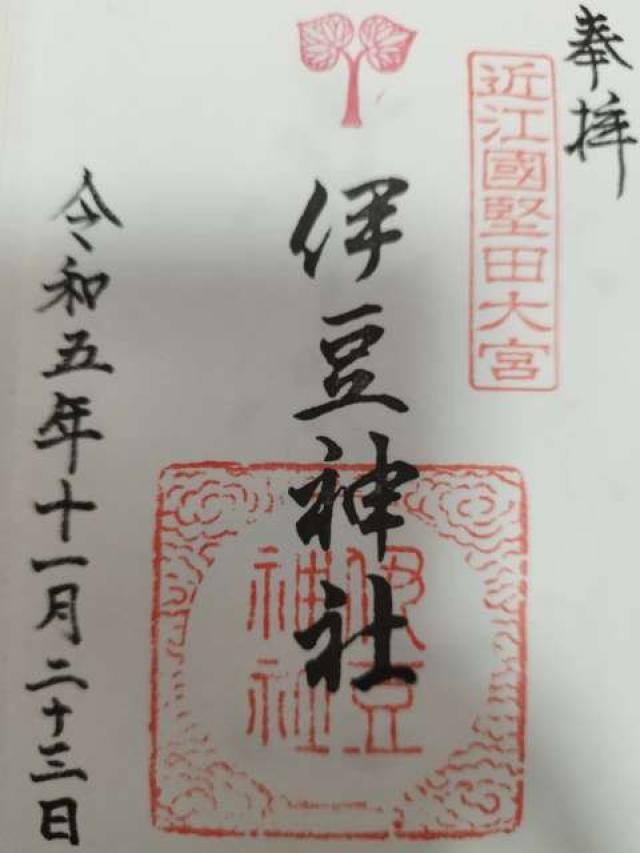 奉拝
近江國堅田大宮
伊豆神社
伊豆
神社
令和五年十一月二十三日